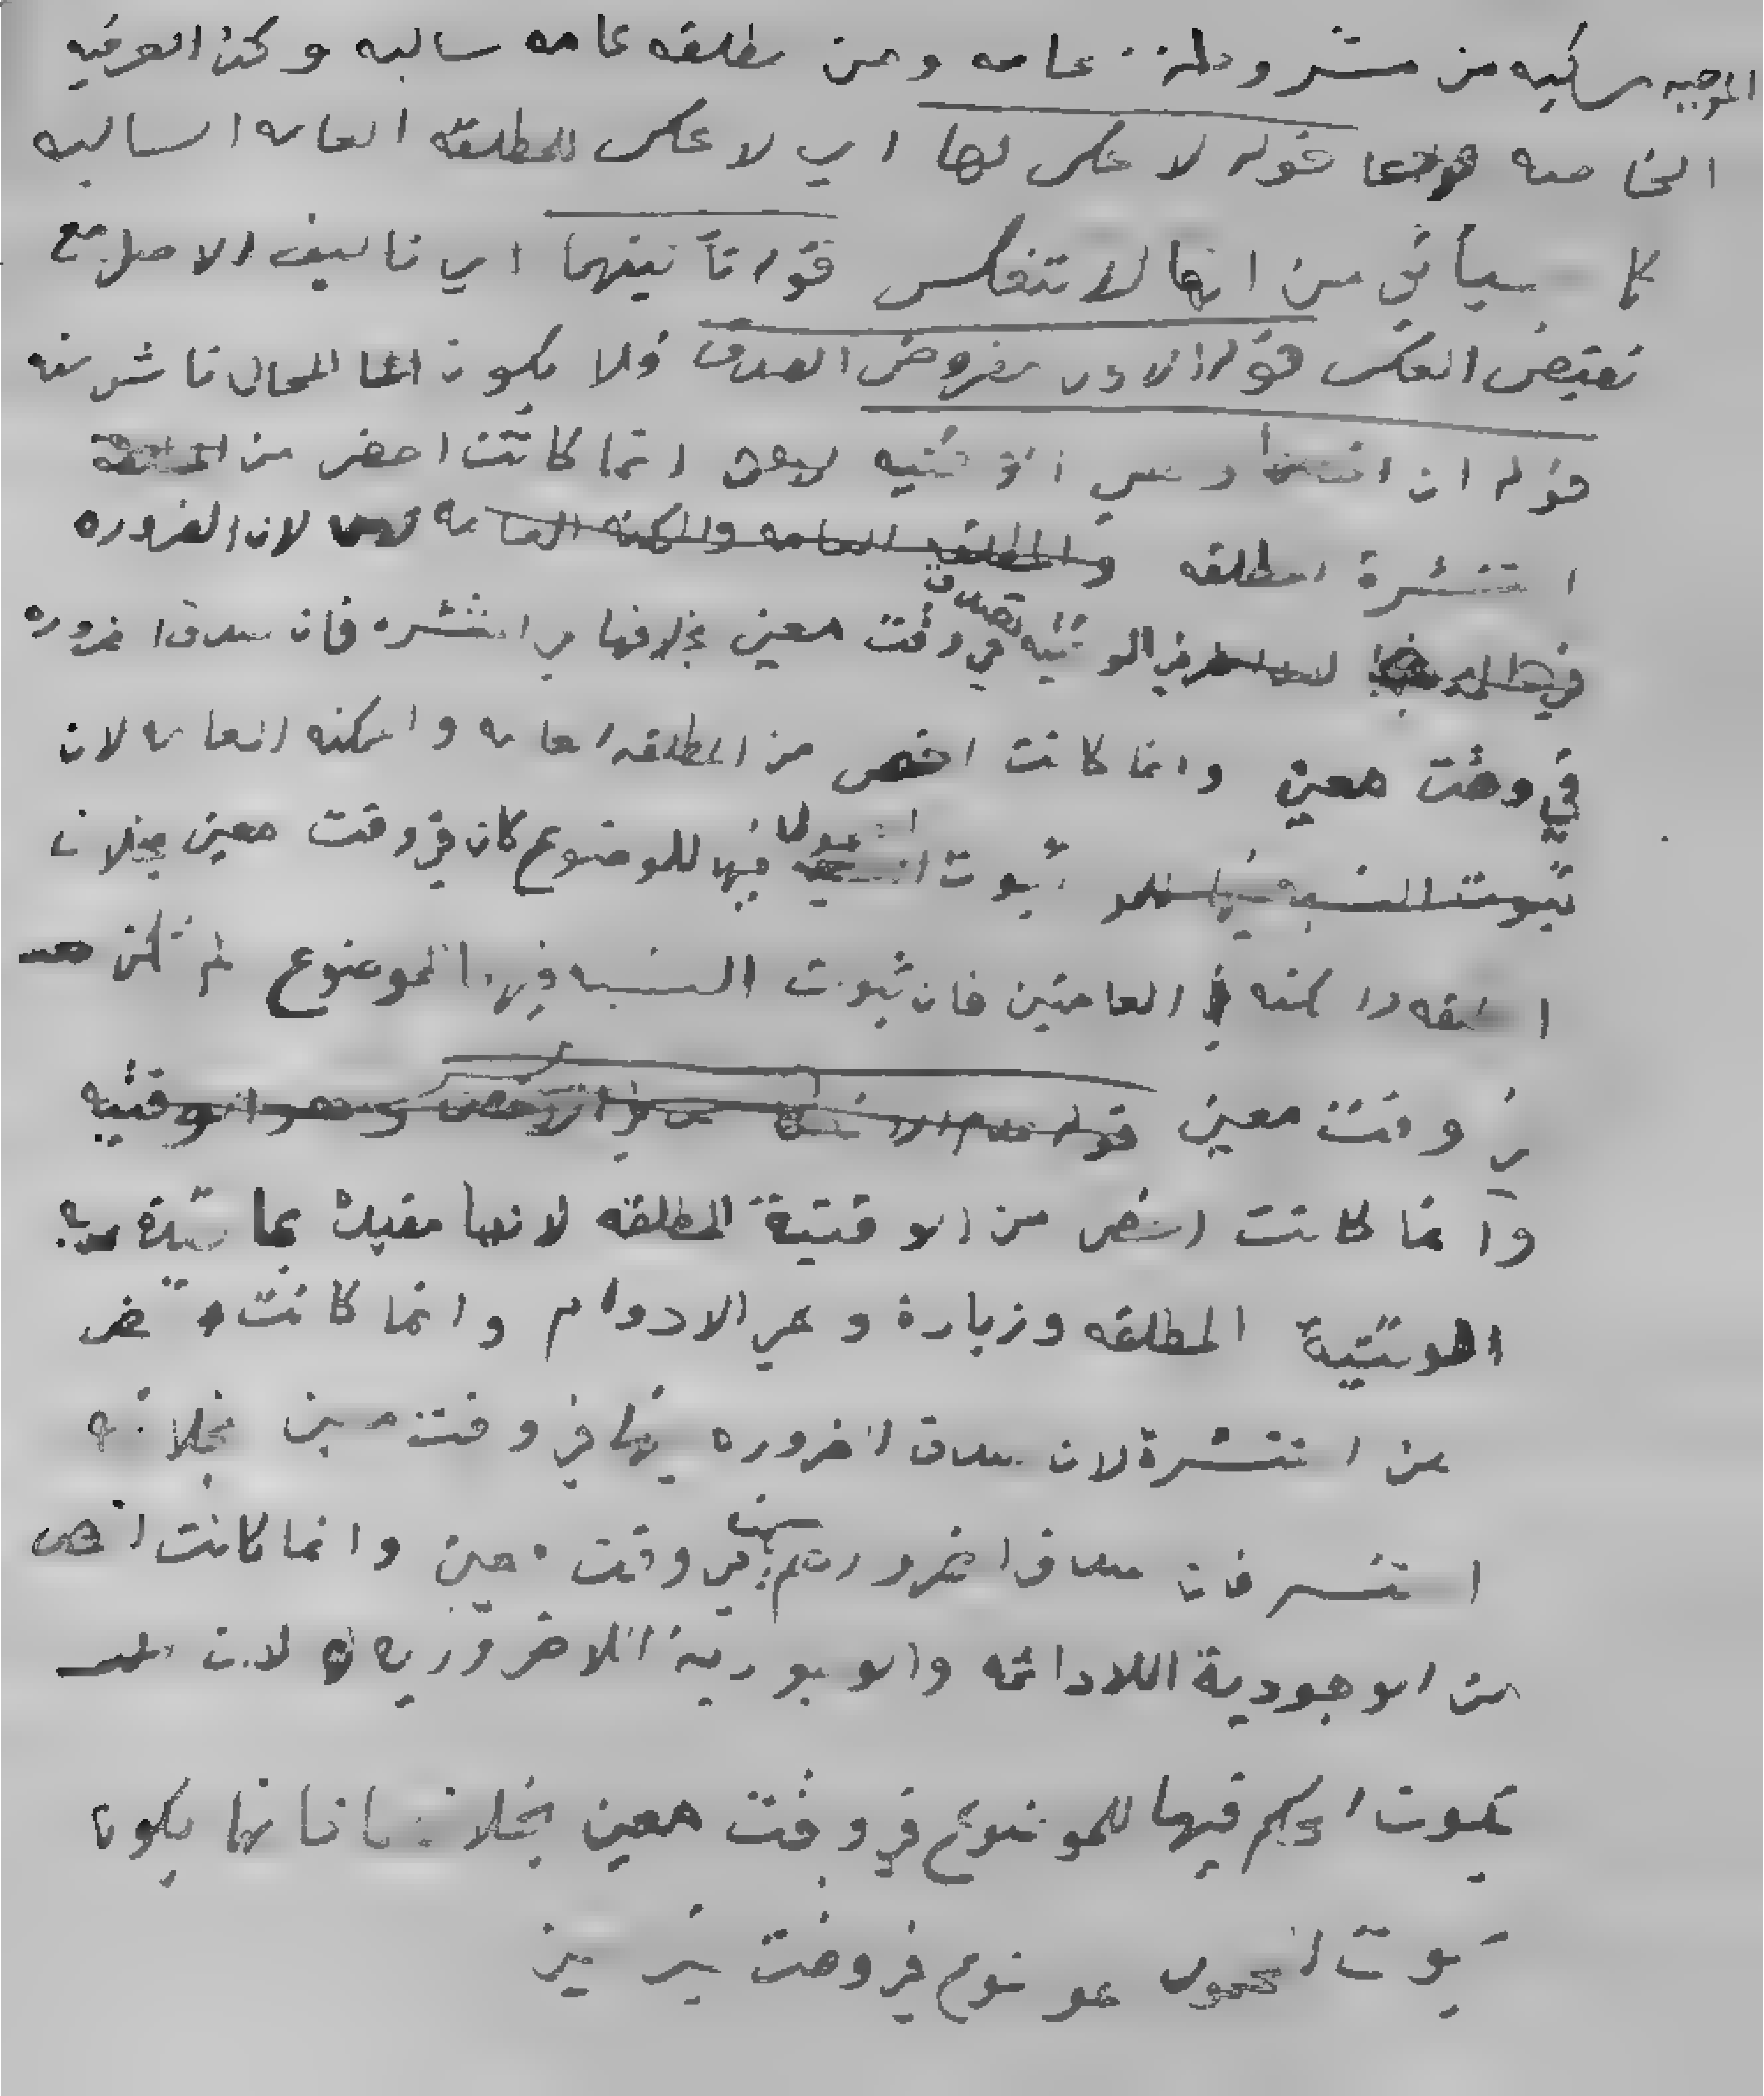 الموجبه مركبه من مشروطة عامه ومن مطلقه عامه سالبه وكذا العرفيه
الخاصه قوله لا عكس لها اي لا عكس للمطلقه العامه السالبه
كما سيأتي من انها لا تنعكس قوله ثانيهما اي تاليف الاصل مع
نقيض العكس قوله الاول مفروض الصدق فلا يكون المحال ناشئ منه
قوله ان الوقتيه انما كانت اخص من
المنتشرة المطلقه والمطلقه العامه والممكنه العامه لان الضروره
في الوقتيه تصدق في وقت معين بخلافها في المنتشره فان صدق الضروره
في وقت معين وانما كانت اخص من المطلقه العامه والممكنه العامه لان
ثبوت النسبه فيها ثبوت المحمول فيها للموضوع كان في وقت معين بخلاف
المطلقه والممكنه العامتين فان ثبوت النسبه فيها للموضوع لم تكن
في وقت معين قوله الوقتيه
وانما كانت اخص من الوقتية المطلقه لانها مقيدة بما قيدة به
الوقتية المطلقه وزيادة وهي الادوام وانما كانت اخص
من المنتشرة لان صدق الضروره فيها في وقت معين بخلاف
المنتشر فان صدق الضروره فيها في وقت معين وانما كانت اخص
من الوجودية اللادائمه والوجودية اللاضروريه لان
ثبوت الحكم فيها للموضوع في وقت معين بخلافهما فانها يكون
ثبوت المحمول للموضوع في وقت غير معين